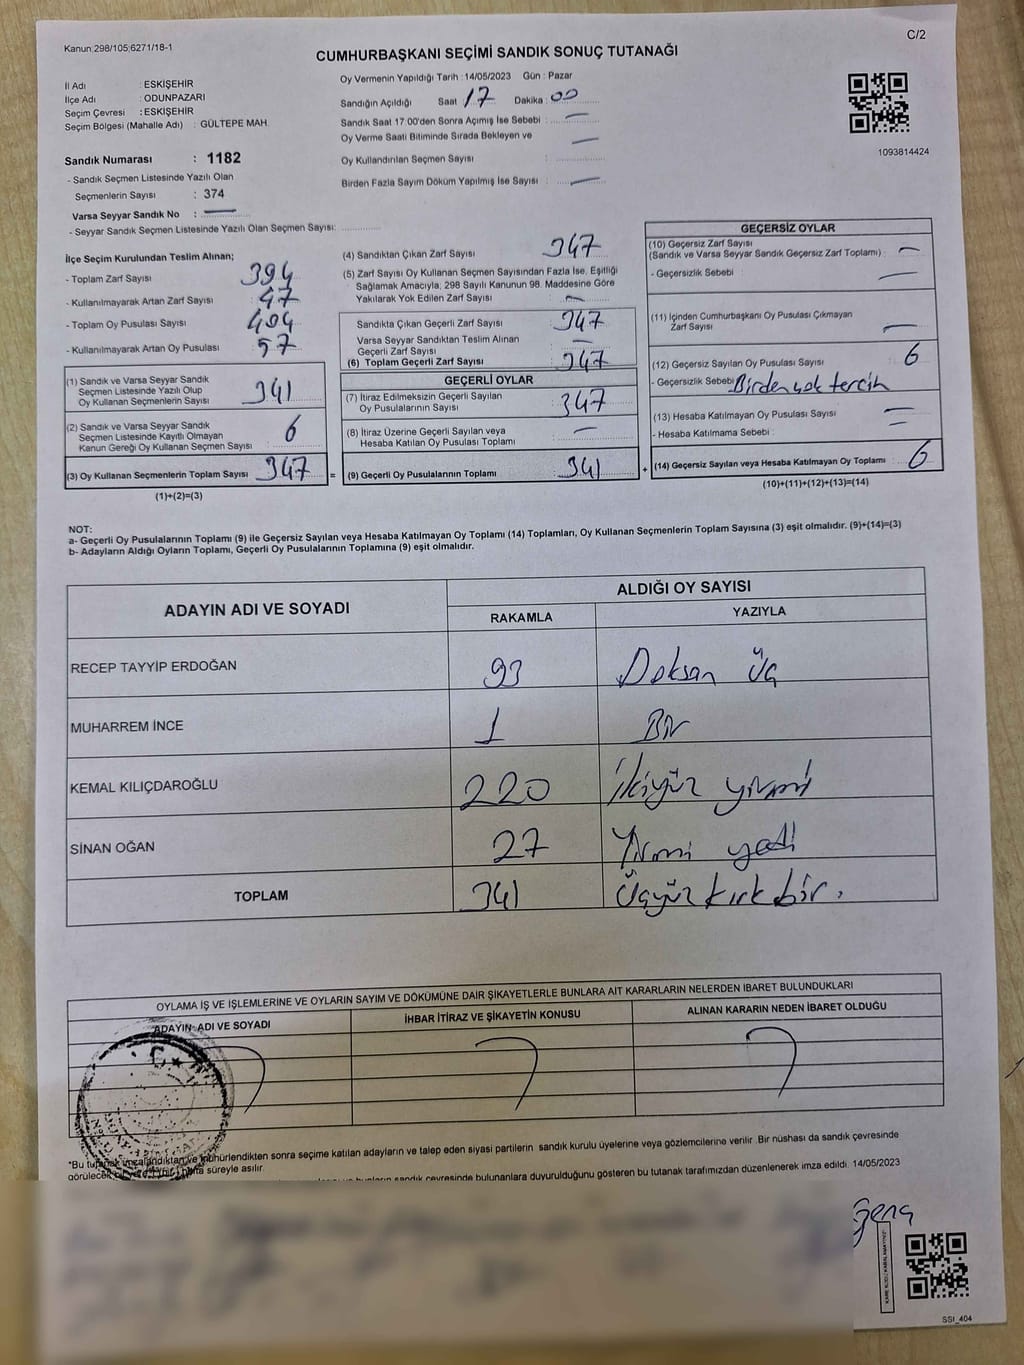 Kanun:298/105;6271/18-1
C/2
CUMHURBAŞKANI SEÇİMİ SANDIK SONUÇ TUTANAĞI
İl Adı : ESKİŞEHİR
İlçe Adı : ODUNPAZARI
Seçim Çevresi : ESKİŞEHİR
Seçim Bölgesi (Mahalle Adı) : GÜLTEPE MAH.
Sandık Numarası : 1182
- Sandık Seçmen Listesinde Yazılı Olan
Seçmenlerin Sayısı : 374
Varsa Seyyar Sandık No :
- Seyyar Sandık Seçmen Listesinde Yazılı Olan Seçmen Sayısı:
Oy Vermenin Yapıldığı Tarih :14/05/2023 Gün : Pazar
Sandığın Açıldığı Saat 17 Dakika : 00
Sandık Saat 17.00'den Sonra Açımış İse Sebebi :
Oy Verme Saati Bitiminde Sırada Bekleyen ve
Oy Kullandırılan Seçmen Sayısı :
Birden Fazla Sayım Döküm Yapılmış İse Sayısı :
1093814424
İlçe Seçim Kurulundan Teslim Alınan;
- Toplam Zarf Sayısı : 394
- Kullanılmayarak Artan Zarf Sayısı : 47
- Toplam Oy Pusulası Sayısı : 404
- Kullanılmayarak Artan Oy Pusulası : 57
(1) Sandık ve Varsa Seyyar Sandık
Seçmen Listesinde Yazılı Olup
Oy Kullanan Seçmenlerin Sayısı : 341
(2) Sandık ve Varsa Seyyar Sandık
Seçmen Listesinde Kayıtlı Olmayan
Kanun Gereği Oy Kullanan Seçmen Sayısı : 6
(3) Oy Kullanan Seçmenlerin Toplam Sayısı : 347
(1)+(2)=(3)
(4) Sandıktan Çıkan Zarf Sayısı : 347
(5) Zarf Sayısı Oy Kullanan Seçmen Sayısından Fazla İse, Eşitliği
Sağlamak Amacıyla, 298 Sayılı Kanunun 98. Maddesine Göre
Yakılarak Yok Edilen Zarf Sayısı :
Sandıkta Çıkan Geçerli Zarf Sayısı : 347
Varsa Seyyar Sandıktan Teslim Alınan
Geçerli Zarf Sayısı :
(6) Toplam Geçerli Zarf Sayısı : 347
GEÇERLİ OYLAR
(7) İtiraz Edilmeksizin Geçerli Sayılan
Oy Pusulalarının Sayısı : 347
(8) İtiraz Üzerine Geçerli Sayılan veya
Hesaba Katılan Oy Pusulası Toplamı :
= (9) Geçerli Oy Pusulalarının Toplamı : 341 +
GEÇERSİZ OYLAR
(10) Geçersiz Zarf Sayısı
(Sandık ve Varsa Seyyar Sandık Geçersiz Zarf Toplamı) :
- Geçersizlik Sebebi :
(11) İçinden Cumhurbaşkanı Oy Pusulası Çıkmayan
Zarf Sayısı :
(12) Geçersiz Sayılan Oy Pusulası Sayısı : 6
- Geçersizlik Sebebi : Birden çok tercih
(13) Hesaba Katılmayan Oy Pusulası Sayısı :
- Hesaba Katılmama Sebebi :
(14) Geçersiz Sayılan veya Hesaba Katılmayan Oy Toplamı : 6
(10)+(11)+(12)+(13)=(14)
NOT:
a- Geçerli Oy Pusulalarının Toplamı (9) ile Geçersiz Sayılan veya Hesaba Katılmayan Oy Toplamı (14) Toplamları, Oy Kullanan Seçmenlerin Toplam Sayısına (3) eşit olmalıdır. (9)+(14)=(3)
b- Adayların Aldığı Oyların Toplamı, Geçerli Oy Pusulalarının Toplamına (9) eşit olmalıdır.
ADAYIN ADI VE SOYADI
ALDIĞI OY SAYISI
RAKAMLA YAZIYLA
RECEP TAYYİP ERDOĞAN 93 Doksan Üç
MUHARREM İNCE 1 Bir
KEMAL KILIÇDAROĞLU 220 İkiyüz yirmi
SİNAN OĞAN 27 Yirmi yedi
TOPLAM 341 Üçyüz kırk bir.
OYLAMA İŞ VE İŞLEMLERİNE VE OYLARIN SAYIM VE DÖKÜMÜNE DAİR ŞİKAYETLERLE BUNLARA AİT KARARLARIN NELERDEN İBARET BULUNDUKLARI
ADAYIN ADI VE SOYADI İHBAR İTİRAZ VE ŞİKAYETİN KONUSU ALINAN KARARIN NEDEN İBARET OLDUĞU
*Bu tutanak imzalandıktan ve mühürlendikten sonra seçime katılan adayların ve talep eden siyasi partilerin sandık kurulu üyelerine veya gözlemcilerine verilir. Bir nüshası da sandık çevresinde
görülecek bir yere süreyle asılır.
sandık çevresinde bulunanlara duyurulduğunu gösteren bu tutanak tarafımızdan düzenlenerek imza edildi. 14/05/2023
SSI_404